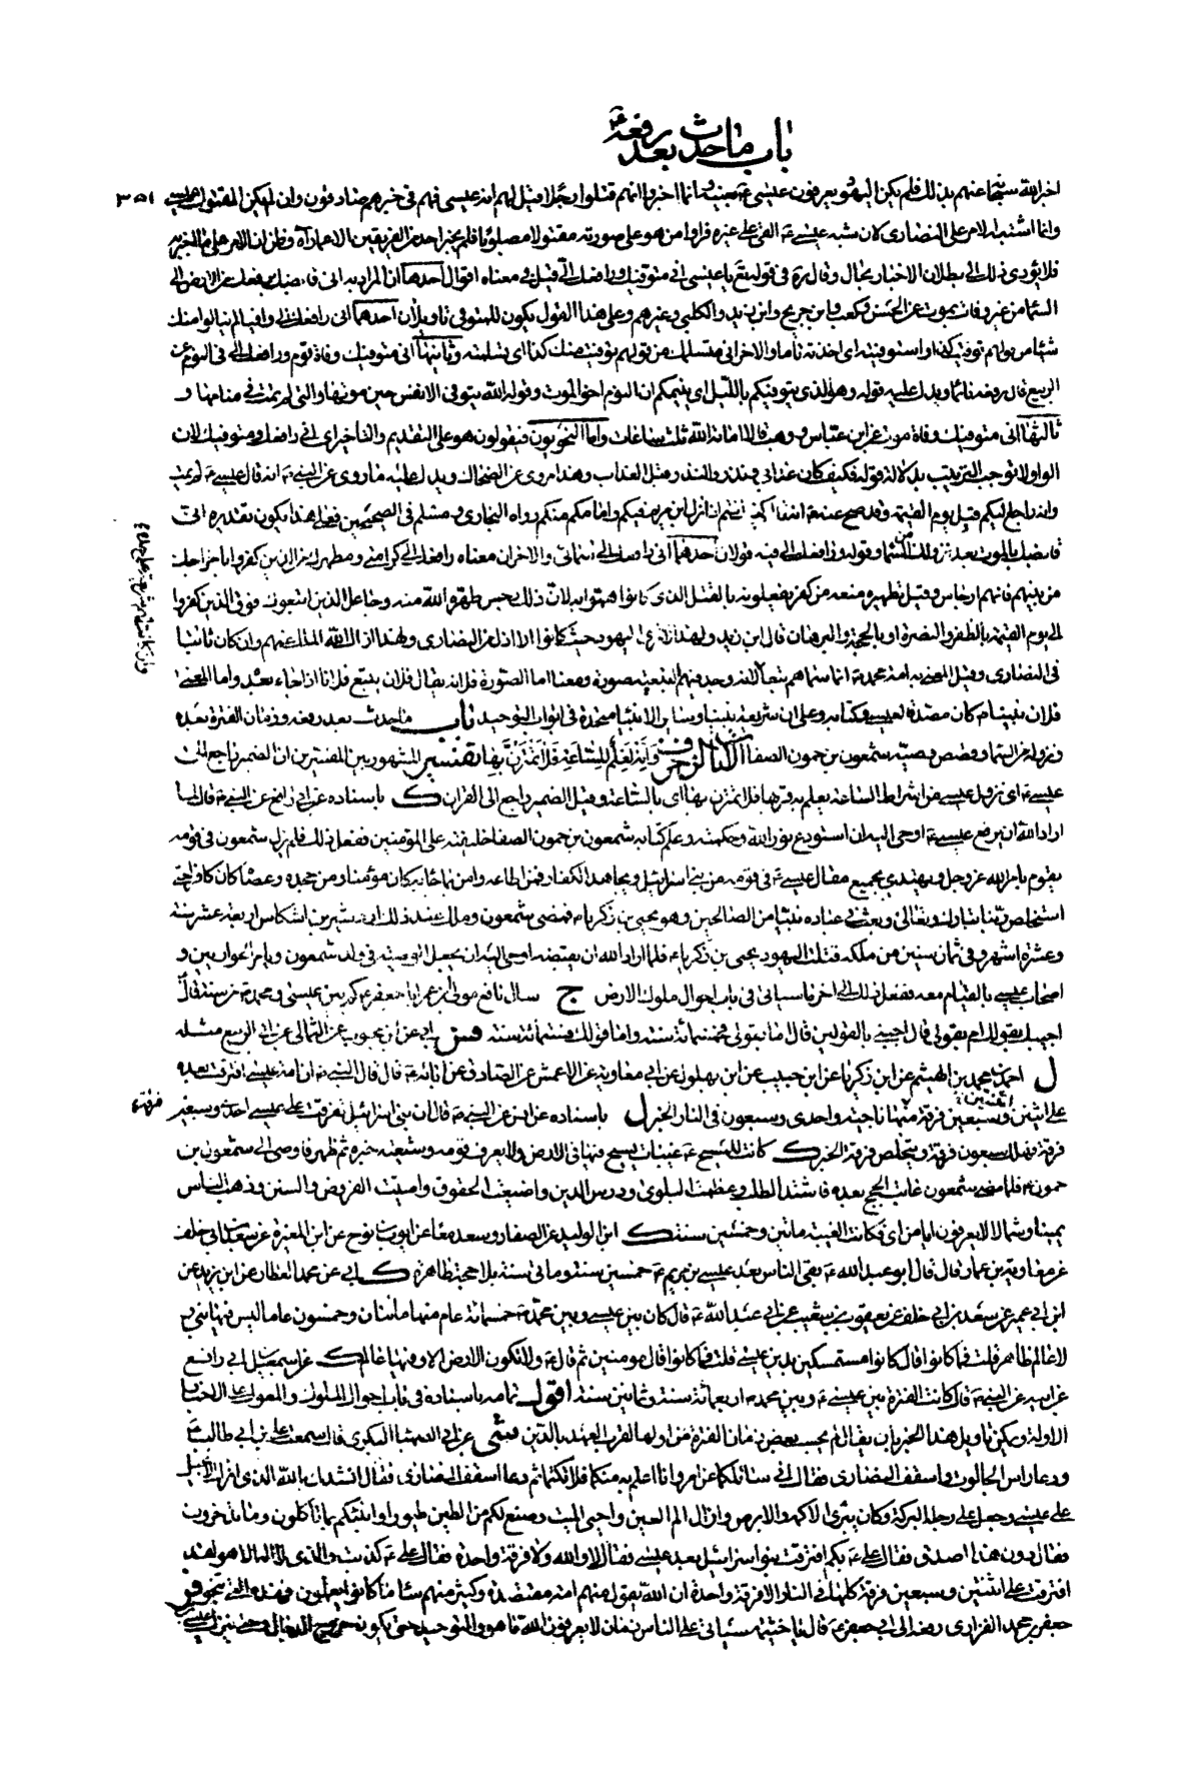 باب ما حدث بعد رفعه
٣٥١
اخبر الله سبحانه عنهم بذلك فلم يكن اليهود يعرفون عيسى ع بعينه وانما اخبروا انهم قتلوا رجلا قيل لهم انه عيسى فهم في خبرهم صادقون وان لم يكن المقتول عيسى
وانما اشتبه الامر على النصارى لان شبه عيسى ع القي على غيره فراوا من هو على صورته مقتولا مصلوبا فلم يخبر احد من الفريقين الا عما رآه وظن ان الامر على ما اخبر به
فلا يؤدي ذلك الى بطلان الاخبار بحال وقال ره في قوله تع يا عيسى اني متوفيك ورافعك الي قيل في معناه اقوال احدها ان المراد به اني قابضك برفعك من الارض الى
السماء من غير وفاة بموت عن الحسن وكعب وابن جريج وابن زيد والكلبي وغيرهم وعلى هذا القول يكون للمتوفي تاويلان احدهما اني رافعك الي وافيا لم ينالوا منك
شيئا من قولهم توفيت كذا واستوفيته اي اخذته تاما والاخر اني متسلمك من قولهم توفيت منك كذا اي تسلمته وثانيها اني متوفيك وفاة نوم ورافعك الي في النوم عن
الربيع قال رفعه نائما ويدل عليه قوله وهو الذي يتوفيكم بالليل اي ينيمكم ان النوم اخو الموت وقوله الله يتوفى الانفس حين موتها والتي لم تمت في منامها و
ثالثها اني متوفيك وفاة موت عن ابن عباس ووهب قالا اماته الله ثلث ساعات واما النحويون فيقولون هو على التقديم والتاخير اي اني رافعك ومتوفيك لان
الواو لا توجب الترتيب بدلالة قوله فكيف كان عذابي ونذر والنذر قبل العذاب وهذا مروي عن الضحاك ويدل عليه ما روي عن النبي ص انه قال عيسى ع لم يمت
وانه راجع اليكم قبل يوم القيمة وقد صح عنه ص انه قال كيف انتم اذا نزل ابن مريم فيكم وامامكم منكم رواه البخاري ومسلم في الصحيحين فعلى هذا يكون تقديره اني
قابضك بالموت بعد نزولك من السماء وقوله ورافعك الي فيه قولان احدهما اني رافعك الى سمائي والاخر ان معناه رافعك الى كرامتي ومطهرك من الذين كفروا باخراجك
من بينهم فانهم ارجاس وقيل تطهيره منعه من كفر يفعلونه بالقتل الذي كانوا هموا به لان ذلك رجس طهره الله منه وجاعل الذين اتبعوك فوق الذين كفروا
الى يوم القيمة بالظفر والنصرة او بالحجة والبرهان قال ابن زيد ولهذا لا ترى اليهود حيث كانوا الا اذل من النصارى ولهذا ازال الله الملك عنهم وان كان ثابتا
في النصارى وقيل المعني به امة محمد ص انما سماهم تبعا لانه وجد فيهم التبعية صورة ومعنى اما الصورة فلانه يقال فلان يتبع فلانا اذا جاء بعده واما المعنى
فلان نبينا ص كان مصدقا لعيسى وكتابه وعلى ان شريعة نبينا وساير الانبياء متحدة في ابواب التوحيد باب ما حدث بعد رفعه وزمان الفترة بعده
ونزوله من السماء وقصص وصيه شمعون بن حمون الصفا الايات الزخرف وانه لعلم للساعة فلا تمترن بها تفسير المشهور بين المفسرين ان الضمير راجع الى
عيسى ع اي نزول عيسى من اشراط الساعة يعلم به قربها فلا تمترن بها اي بالساعة وقيل الضمير راجع الى القران ك باسناده عن ابي رافع عن النبي ص قال لما
اراد الله ان يرفع عيسى ع اوحى اليه ان استودع نور الله وحكمته وعلم كتابه شمعون بن حمون الصفا خليفته على المؤمنين ففعل ذلك فلم يزل شمعون في قومه
يقوم بامر الله عز وجل ويهتدي بجميع مقال عيسى ع في قومه من بني اسرائيل ويجاهد الكفار فمن اطاعه وامن بما جاء به كان مؤمنا ومن جحده وعصاه كان كافرا حتى
استخلص ربنا تبارك وتعالى وبعث في عباده نبيا من الصالحين وهو يحيى بن زكريا ع فمضى شمعون وملك عند ذلك اردشير بن اشكاس اربعة عشر سنة
وعشرة اشهر وفي ثمان سنين من ملكه قتلت اليهود يحيى بن زكريا ع فلما اراد الله ان يقبضه اوحى اليه ان يجعل الوصية في ولد شمعون ويامر الحواريين و
اصحاب عيسى بالقيام معه ففعل ذلك الى اخر ما سياتي في باب احوال ملوك الارض ج سال نافع مولى ابن عمر ابا جعفر ع كم بين عيسى ومحمد ص من سنة قال
اجيبك بقولك ام بقولي قال اجبني بالقولين قال اما بقولي فخمسمائة سنة واما قولك فستمائة سنة فس ابي عن ابن محبوب عن الثمالي عن ابي الربيع مثله
ل احمد بن محمد بن الهيثم عن ابن زكريا عن ابن حبيب عن ابن بهلول عن ابي معاوية عن الاعمش عن الصادق عن ابائه ع قال قال النبي ص ان امة عيسى افترقت بعده
على اثنتين وسبعين فرقة فرقة منها ناجية واحدى وسبعون في النار الخبر ل باسناده عن انس عن النبي ص قال ان بني اسرائيل تفرقت على عيسى احدى وسبعين
فرقة فهلك سبعون فرقة ويتخلص فرقة الخبر ك كانت للمسيح ع غيبات يسيح فيها في الارض ولا يعرف قومه وشيعته خبره ثم ظهر فاوصى الى شمعون بن
حمون ع فلما مضى شمعون غابت الحجج بعده فاشتد الطلب وعظمت البلوى ودرس الدين واضيعت الحقوق واميتت الفروض والسنن وذهب الناس
يمينا وشمالا لا يعرفون ايا من اي فكانت الغيبة مائتين وخمسين سنة ك ابن الوليد عن الصفار وسعد معا عن ايوب بن نوح عن ابن المغيرة عن سعد بن ابي خلف
عن معاوية بن عمار قال قال ابو عبد الله ع بقي الناس بعد عيسى بن مريم ع خمسين سنة ومائتي سنة بلا حجة ظاهرة ك ابي عن محمد العطار عن ابن يزيد عن
ابن ابي عمير عن سعد بن ابي خلف عن يعقوب بن شعيب عن ابي عبد الله ع قال كان بين عيسى وبين محمد ص خمسمائة عام منها مائتان وخمسون عاما ليس فيها نبي و
لا عالم ظاهر قلت فما كانوا قال كانوا مستمسكين بدين عيسى قلت فما كانوا قال مؤمنين ثم قال ع ولا تكون الارض الا وفيها عالم ك عن اسمعيل بن ابي رافع
عن ابيه عن النبي ص قال كانت الفترة بين عيسى ع وبين محمد ص اربعمائة سنة وثمانين سنة اقول تمامه باسناده في باب احوال الملوك والمعول على الاخبار
الاولة ويمكن تاويل هذا الخبر بان يقال لم يحسب بعض زمان الفترة من اولها لقرب العهد بالدين شى عن ابي الصهباء البكري قال سمعت علي بن ابي طالب ع
ودعا راس الجالوت واسقف النصارى فقال اني سائلكما عن امر وانا اعلم به منكما فلا تكتما ثم دعا اسقف النصارى فقال انشدك بالله الذي انزل الانجيل
على عيسى وجعل على رجله البركة وكان يبرئ الاكمه والابرص وازال الم العين واحيى الميت وصنع لكم من الطين طيورا وانبئكم بما تاكلون وما تدخرون
فقال دون هذا اصدق فقال علي ع بكم افترقت بنو اسرائيل بعد عيسى فقال لا والله ولا فرقة واحدة فقال علي ع كذبت والذي لا اله الا هو لقد
افترقت على اثنتين وسبعين فرقة كلها في النار الا فرقة واحدة ان الله يقول منهم امة مقتصدة وكثير منهم ساء ما كانوا يعملون فهذه التي تنجو فر
جعفر بن محمد الفزاري رفعه الى ابي جعفر ع قال يا خيثمة سياتي على الناس زمان لا يعرفون الله ما هو والتوحيد حتى يكون خروج الدجال وحتى ينزل عيسى
فرقة ع